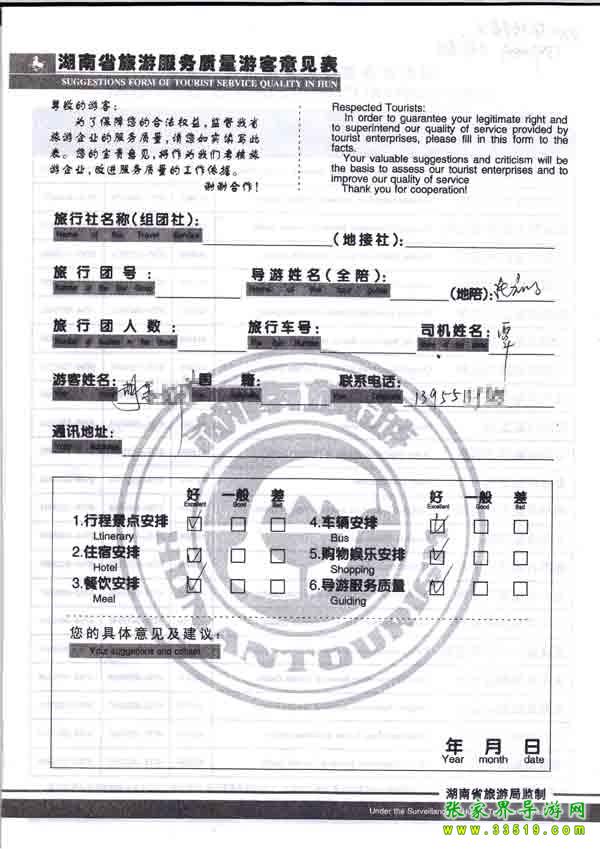 湖南省旅游服务质量游客意见表
SUGGESTIONS FORM OF TOURIST SERVICE QUALITY IN HUN
尊敬的游客：
为了保障您的合法权益，监督我省
旅游企业的服务质量，请您如实填写此
表。您的宝贵意见，将作为我们考核旅
游企业，改进服务质量的工作依据。
谢谢合作！
Respected Tourists:
In order to guarantee your legitimate right and
to superintend our quality of service provided by
tourist enterprises, please fill in this form to the
facts.
Your valuable suggestions and criticism will be
the basis to assess our tourist enterprises and to
improve our quality of service
Thank you for cooperation!
旅行社名称(组团社)： (地接社)：
Name of the Travel Service
旅行团号： 导游姓名(全陪) (地陪)：
旅行团人数： 旅行车号： 司机姓名：覃
游客姓名： 国籍： 联系电话：
通讯地址：
好 一般 差 好 一般 差
Excellent Good Bad Excellent Good Bad
1.行程景点安排 4.车辆安排
Ltinerary Bus
2.住宿安排 5.购物娱乐安排
Hotel Shopping
3.餐饮安排 6.导游服务质量
Meal Guiding
HUNAN TOURISM
您的具体意见及建议：
Your suggetions and
年 月 日
Year month date
湖南省旅游局监制
Under the Surveillance
张家界导游网
www.33519.com